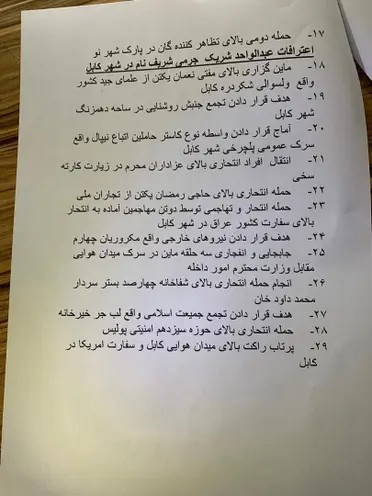 ۱۷- حمله دومی بالای تظاهر کننده گان در پارک شهر نو
اعترافات عبدالواحد شریک جرمی شریف نام در شهر کابل
۱۸- ماین گزاری بالای مفتی نعمان یکتن از علمای جید کشور
واقع ولسوالی شکردره کابل
۱۹- هدف قرار دادن تجمع جنبش روشنایی در ساحه دهمزنگ
شهر کابل
۲۰- آماج قرار دادن واسطه نوع کاستر حاملین اتباع نیپال واقع
سرک عمومی پلچرخی شهر کابل
۲۱- انتقال افراد انتحاری بالای عزاداران محرم در زیارت کارته
سخی
۲۲- حمله انتحاری بالای حاجی رمضان یکتن از تجاران ملی
۲۳- حمله انتحار و تهاجمی توسط دوتن مهاجمین آماده به انتحار
بالای سفارت کشور عراق در شهر کابل
۲۴- هدف قرار دادن نیروهای خارجی واقع مکروریان چهارم
۲۵- جابجایی و انفجاری سه حلقه ماین در سرک میدان هوایی
مقابل وزارت محترم امور داخله
۲۶- انجام حمله انتحاری بالای شفاخانه چهارصد بستر سردار
محمد داود خان
۲۷- هدف قرار دادن تجمع جمیعت اسلامی واقع لب جر خیرخانه
۲۸- حمله انتحاری بالای حوزه سیزدهم امنیتی پولیس
۲۹- پرتاب راکت بالای میدان هوایی کابل و سفارت امریکا در
کابل